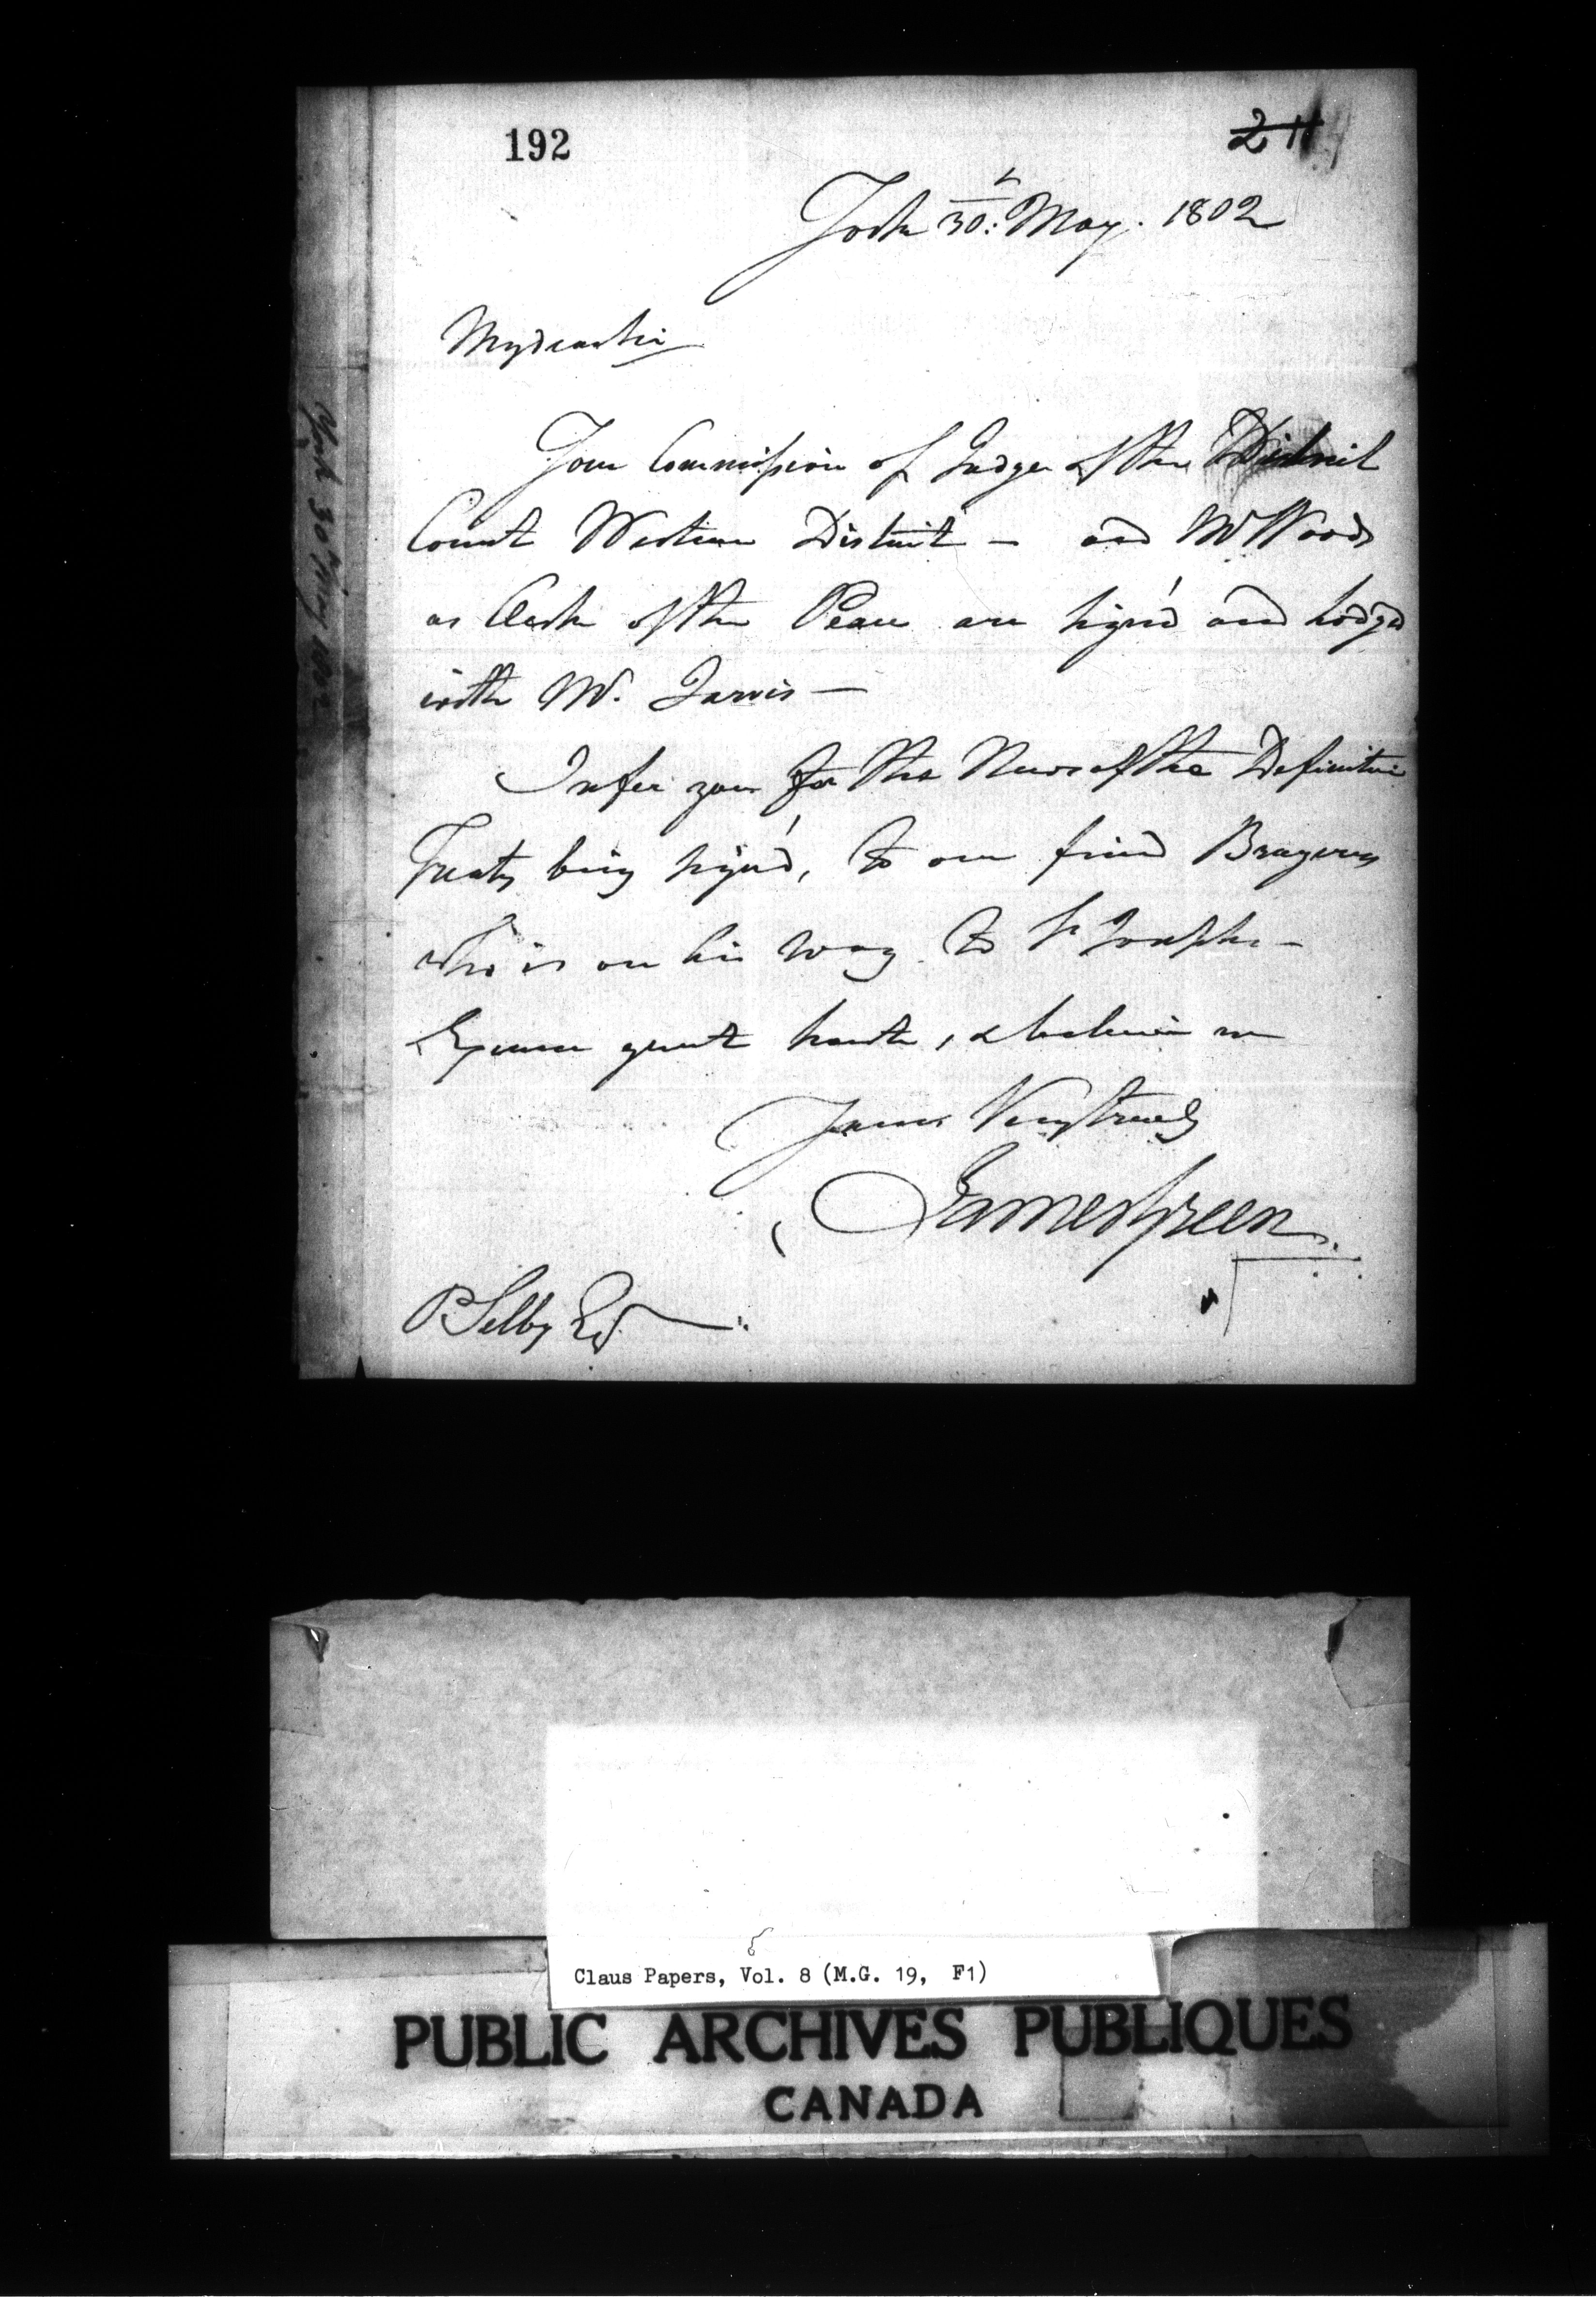 192
211
York 30th May. 1802
My dear Sir
Your Commission of Judge of the District
Court Western District — and Mr Woods
as Clerk of the Peace are sign'd and lodg'd
with Mr. Jarvis —
I refer you for the News of the Definitive
Treaty being sign'd, to our friend
who is on his way to St Josephs —
Excuse great haste, & believe me
Yours Very truly
James Green
P Selby Esqr
York 30th May 1802
8
Claus Papers, Vol. 8 (M.G. 19, F1)
PUBLIC ARCHIVES PUBLIQUES
CANADA